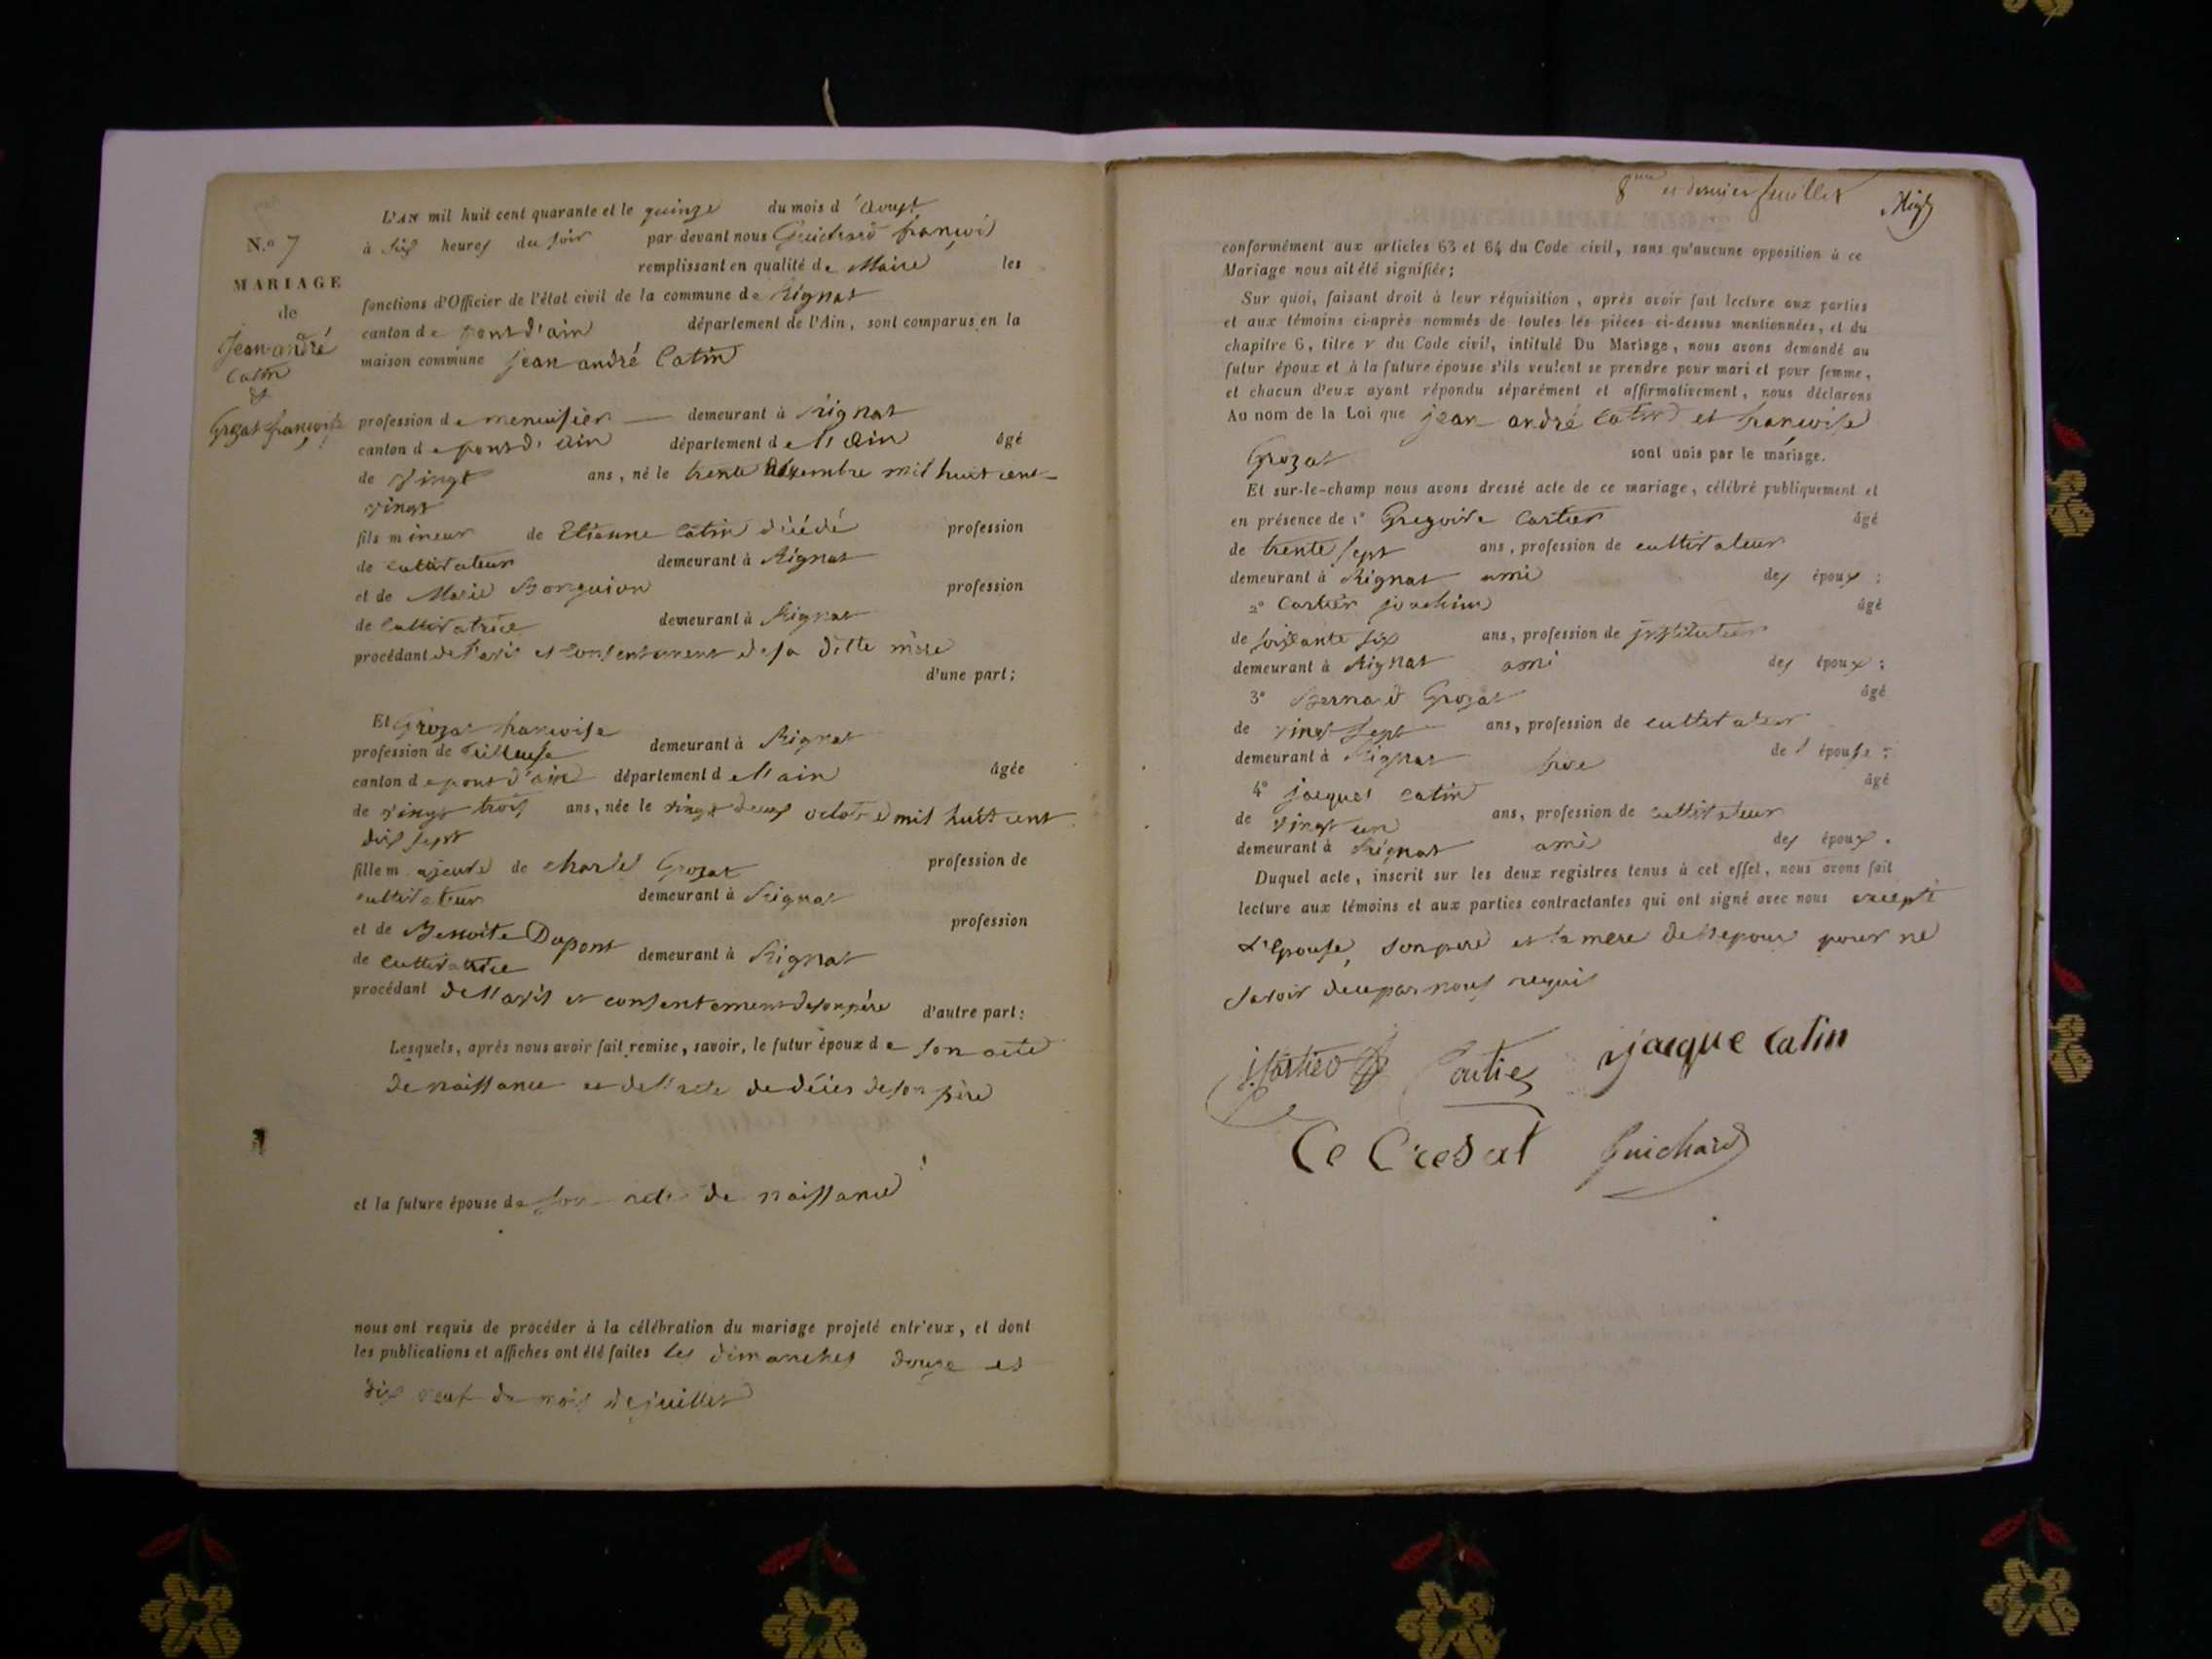 N.o 7
MARIAGE
de
Jean andré
Catin
&
Grozat françoise
L'AN mil huit cent quarante et le quinze du mois d'Aoust
à six heures du soir par-devant nous Guichard françois
remplissant en qualité de Maire les
fonctions d'Officier de l'état civil de la commune de Rignat
canton de pont d'ain département de l'Ain, sont comparus en la
maison commune jean andré Catin
profession de menuisier — demeurant à Rignat
canton de pont d'ain département de l'ain âgé
de vingt ans, né le trente décembre mil huit cent
vingt
fils mineur de Etienne Catin décédé profession
de cultivateur demeurant à Rignat
et de Marie profession
de cultivatrice demeurant à Rignat
procédant de l'avis et consentement de sa ditte mère
d'une part;
Et Grozat françoise
profession de tailleuse demeurant à Rignat
canton de pont d'ain département de l'ain âgée
de vingt trois ans, née le vingt deux octobre mil huit cent
dix sept
fille majeure de charle Grozat profession de
cultivateur demeurant à Rignat
et de Benoite Dupont profession
de cultivatrice demeurant à Rignat
procédant de l'avis et consentement de son père d'autre part:
Lesquels, après nous avoir fait remise, savoir, le futur époux de son acte
de naissance et de l'acte de décès de son père
et la future épouse de son acte de naissance
nous ont requis de procéder à la célébration du mariage projeté entr'eux, et dont
les publications et affiches ont été faites les dimanches douze et
dix neuf du mois de juillet
8me et dernier feuillet
conformément aux articles 63 et 64 du Code civil, sans qu'aucune opposition à ce
Mariage nous ait été signifiée;
Sur quoi, faisant droit à leur réquisition, après avoir fait lecture aux parties
et aux témoins ci-après nommés de toutes les pièces ci-dessus mentionnées, et du
chapitre 6, titre v du Code civil, intitulé Du Mariage, nous avons demandé au
futur époux et à la future épouse s'ils veulent se prendre pour mari et pour femme,
et chacun d'eux ayant répondu séparément et affirmativement, nous déclarons
Au nom de la Loi que jean andré Catin et françoise
Grozat sont unis par le mariage.
Et sur-le-champ nous avons dressé acte de ce mariage, célébré publiquement et
en présence de 1° Gregoire Cartier âgé
de trente sept ans, profession de cultivateur
demeurant à Rignat ami des époux;
2° Cartier joachim âgé
de soixante six ans, profession de instituteur
demeurant à Rignat ami des époux;
3° Bernard Grozat âgé
de vingt sept ans, profession de cultivateur
demeurant à Rignat frère de l'épouse;
4° jacques catin âgé
de vingt un ans, profession de cultivateur
demeurant à Rignat ami des époux.
Duquel acte, inscrit sur les deux registres tenus à cet effet, nous avons fait
lecture aux témoins et aux parties contractantes qui ont signé avec nous excepté
L'épouse, son père et la mere de l'epoux pour ne
savoir de ce par nous requis
j. Cartier Cartier jacque catin
Guichard